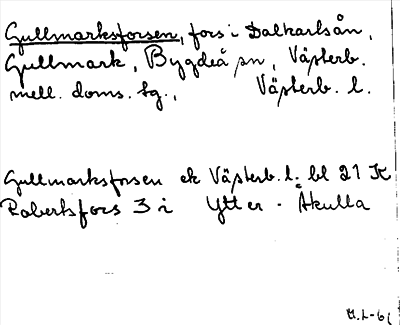 Gullmarksforsen, fors i Dalkarlsån,
Gullmark, Bygdeå sn, Västerb.
mell. doms. sg., Västerb. l.
Gullmarksforsen ek Västerb. l. bl 21 K
Robertsfors 3 i Ytter-Åkulla